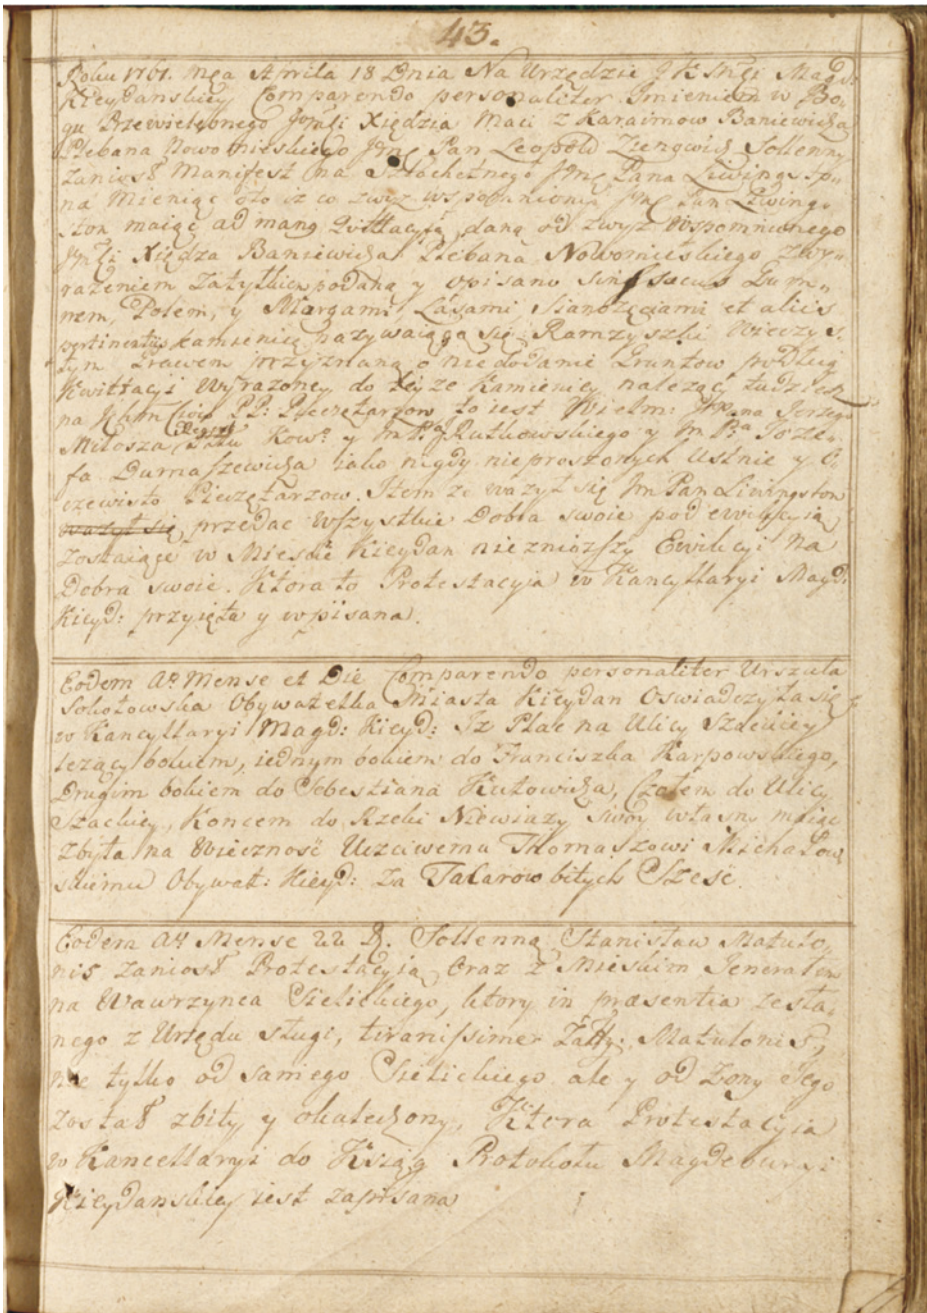 43.
Roku 1761. mca Aprila 18 Dnia Na Urzędzie J K Mći Magd:
Kieydanskiey Comparendo personaliter Imieniem w Bo,
gu Przewielebnego Jmći Xiędza Maci z Karaimow Baniewicza
Plebana Nowomieskiego Jmć Pan Leopold Ziengwicz Sollenny
zaniosł Manifest na Szlachetnego Jmć Pana Liwingsto,
na Mieniąc oto iz co zwyż wspomnionny Jmć Pan Liwing,
ston maiąc ad mang Quittacyją daną od zwyż wspomnionego
Jmći Xiędza Baniewicza Plebana Nowomieskiego z wy,
rażeniem podaną y opisano
nem, Polem, y Morgami, Lasami, Sianożęciami et aliis
pertinentijs kamienicę nazywaiącą się Ramzyszki Wieczys,
tym Prawem przyznaną o niedodanie Gruntow podług
Kwittacyi Wyrażoney do teyze Kamienicy należąć, tudziesz
na Jchm PP: Pieczętarzow to iest Wielm: Jmć Pana Jerzego
Miłosza Regent Kow: y Jm Rutkowskiego y Jm Joze,
fa Dumaszewicza iako nigdy nieproszonych Ustnie y O,
czewisto Pieczętarzow. Item ze ważył się Jm Pan Liwingston
ważył się przedac wszystkie Dobra swoie pod ewikcyią
zostaiące w Miescie Kieydan niezniozszy Ewikcyi na
Dobra swoie. Ktora to Protestacyja w Kancyllaryi Magd:
Kieyd: przyięta y wpisana.
Eodem Ao Mense et Die Comparendo personaliter Urszula
Sokołowska Obywatelka Miasta Kieydan Oswiadczyła się
w Kancyllaryi Magd: Kieyd: Iz Plac na Ulicy Szackiey
leżący bokiem, iednym bokiem do Franciszka Karpowskiego,
Drugim bokiem do Sebestiana Kutowicza, Czołem do Ulicy
Szackiey, Koncem do Rzeki Niewiaży Swoy własny maiąc
zbyła na Wieczność Uczciwemu Thomaszowi Michałow,
skiemu Obywat: Kieyd: za Talarow bitych Szesć.
Eodem Ao Mense 22 D. Sollenną Stanisław Matuło,
nis zaniosł Protestacyią Oraz z Mieskim Jenerałem
na Wawrzynca Sielickiego, ktory in praesentia zesła,
nego z Urzędu sługi, tiranissimer Matulonis,
nie tylko od samego Sielickiego ale y od Zony Jego
został zbity y okaleczony, Ktora Protestacyia
w Kancellaryi do Xsiąg Protokołu Magdeburyi
Kieydanskiey iest zapisana